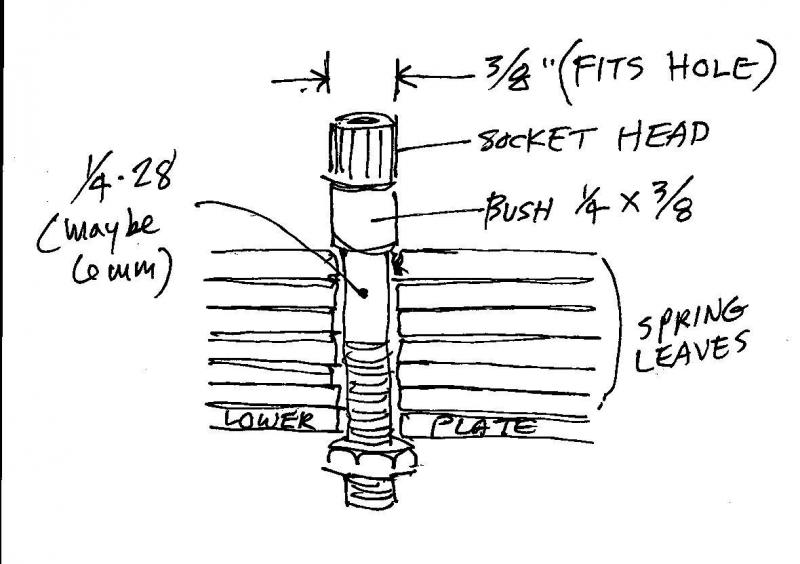 3/8" (FITS HOLE)
SOCKET HEAD
1/4-28
(maybe
6mm)
BUSH 1/4 X 3/8
SPRING
LEAVES
LOWER PLATE